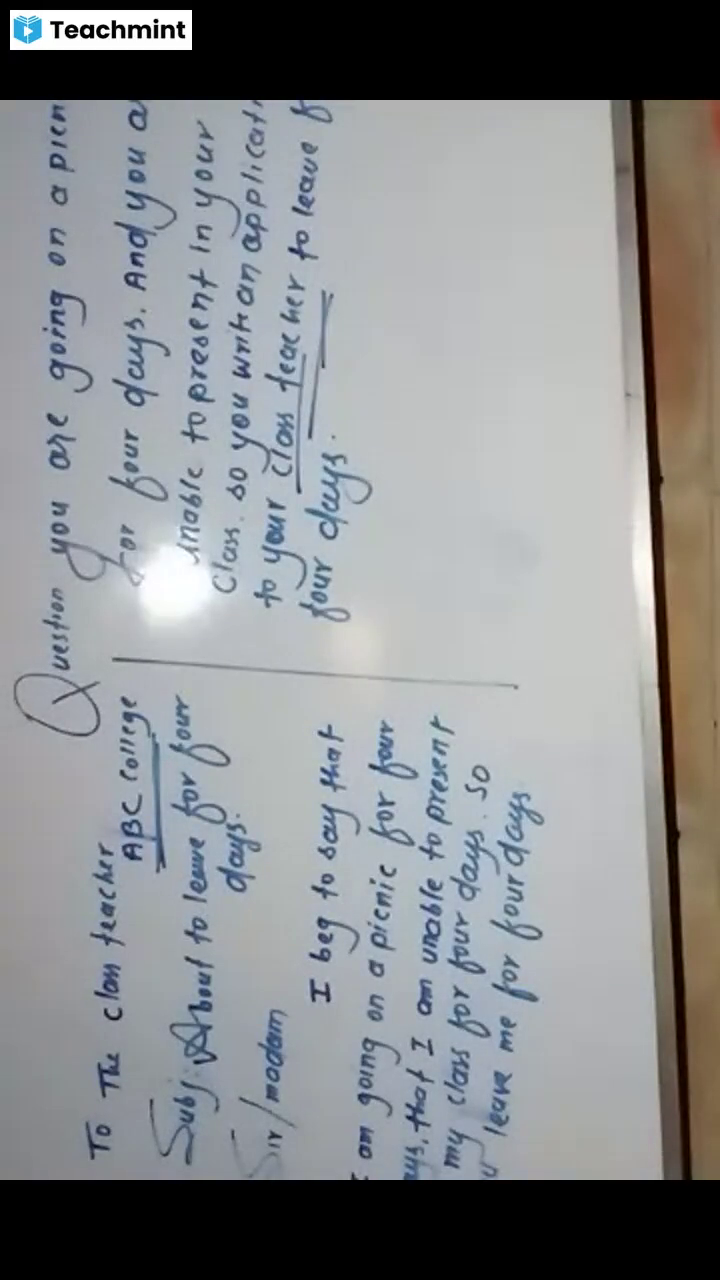 Teachmint
To The class teacher
ABC College
Subj: About to leave for four
days.
Sir/madam
I beg to say that
I am going on a picnic for four
days, that I am unable to present
my class for four days. So
leave me for four days
Question you are going on a
for four days. And you
unable to present in your
Class. so you write an
to your class teacher to leave
four days.